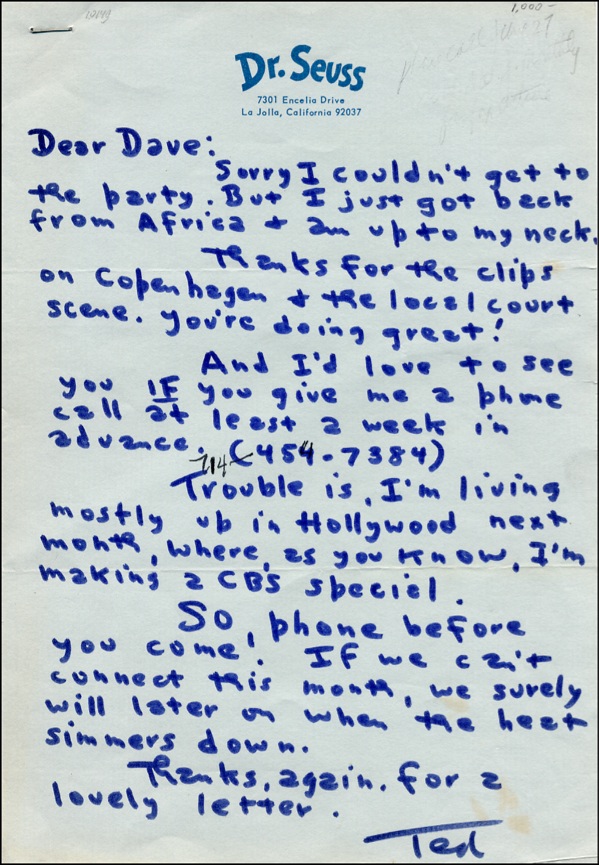 1,000-
Dr. Seuss
7301 Encelia Drive
La Jolla, California 92037
Dear Dave:
Sorry I couldn't get to
the party. But I just got back
from Africa + am up to my neck.
Thanks for the clips
on Copenhagen + the local court
scene. you're doing great!
And I'd love to see
you IF you give me a phone
call at least a week in
advance. (454-7384)
714
Trouble is, I'm living
mostly up in Hollywood next
month, where, as you know, I'm
making a CBS special.
So, phone before
you come! If we can't
connect this month, we surely
will later on when the heat
simmers down.
Thanks, again, for a
lovely letter.
Ted